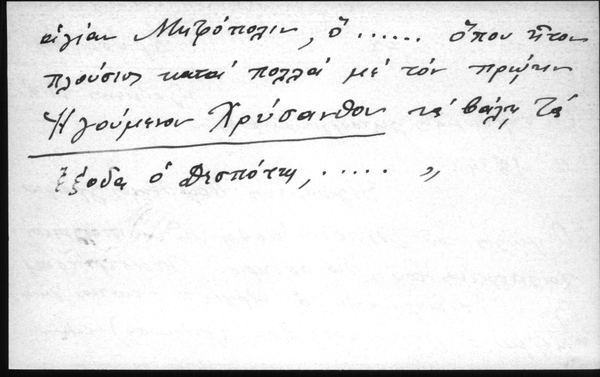 ἁγίαν Μητρόπολιν, ὁ ...... ὅπου ἦτον
πλούσιος κατά πολλά μέ τόν πρώην
Ἡγούμενον Χρύσανθον νά βάλῃ τά
ἔξοδα ὁ Δεσπότης, ..... „